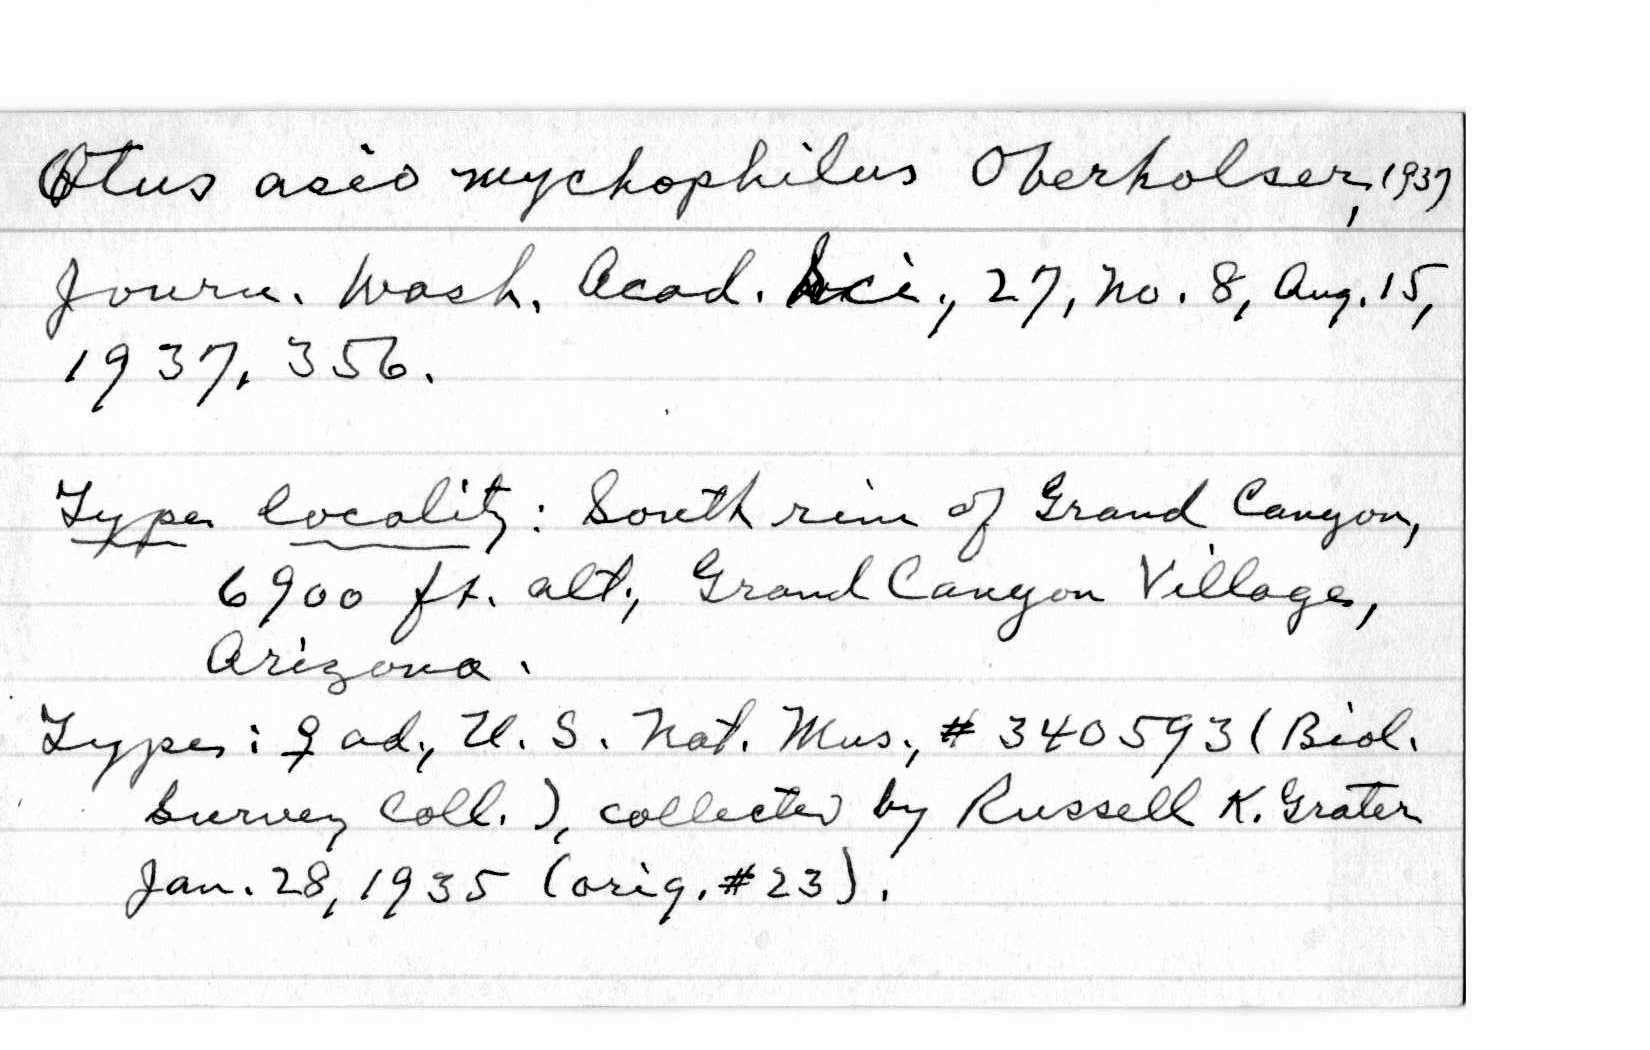 Otus asio mychophilus Oberholser, 1937
Journ. Wash. Acad. Sci., 27, No. 8, Aug. 15,
1937, 356.
Type locality: South rim of Grand Canyon,
6900 ft. alt., Grand Canyon Village,
Arizona.
Type: ♀ ad., U. S. Nat. Mus., # 340593 (Biol.
Survey Coll.), collected by Russell K. Grater
Jan. 28, 1935 (orig. # 23).